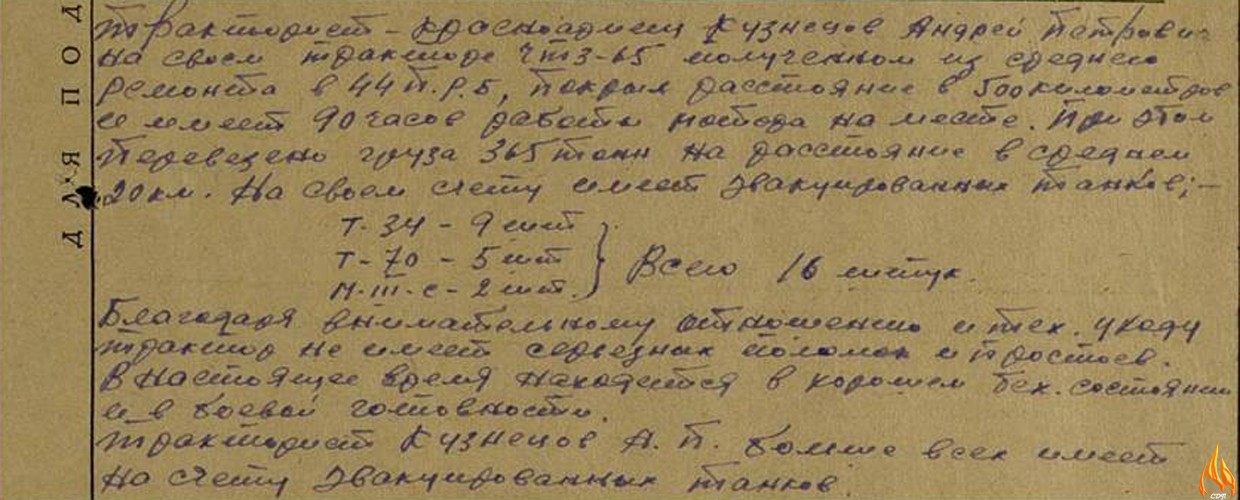 Тракторист - красноармеец Кузнецов Андрей Петрович
на своем тракторе ЧТЗ-65 полученном из среднего
ремонта в 44 П.Р.Б, покрыл расстояние в 500 километров
и имеет 90 часов работы мотора на месте. При этом
перевезено груза 365 тонн на расстояние в среднем
20 км. На своем счету имеет эвакуированных танков;-
Т-34 - 9 шт
Т-70 - 5 шт
М-III-с - 2 шт.
Всего 16 штук.
Благодаря внимательному отношению и тех. уходу
трактор не имеет серьезных поломок и простоев.
В настоящее время находится в хорошем тех. состоянии
и в боевой готовности.
Тракторист Кузнецов А. П. больше всех имеет
на счету эвакуированных танков.
ДЛЯ ПОД
CDR